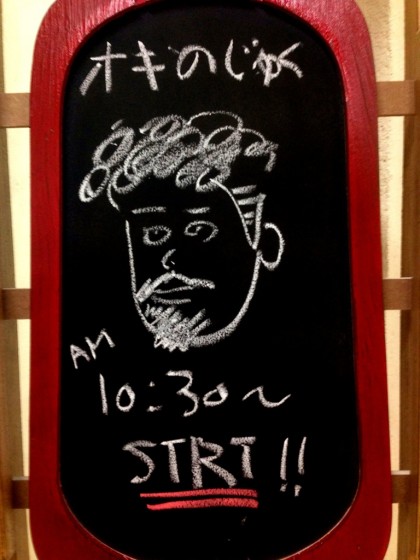 オキのじゅく
AM
10:30~
STRT!!